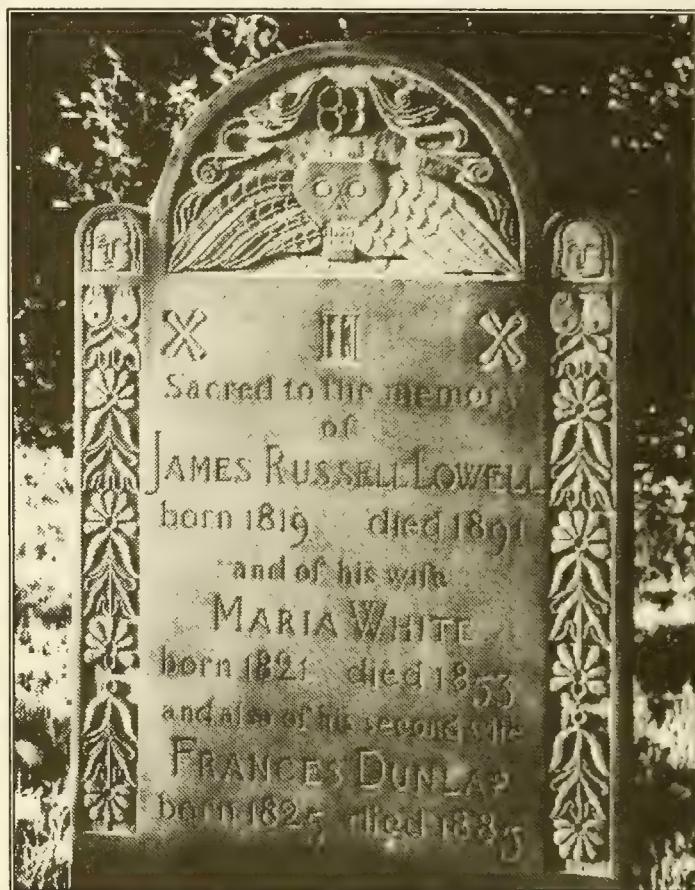 Sacred to the memory
of
JAMES RUSSELL LOWELL
born 1819 died 1891
and of his wife
MARIA WHITE
born 1821 died 1853
and also of his second wife
FRANCES DUNLAP
born 1825 died 1885